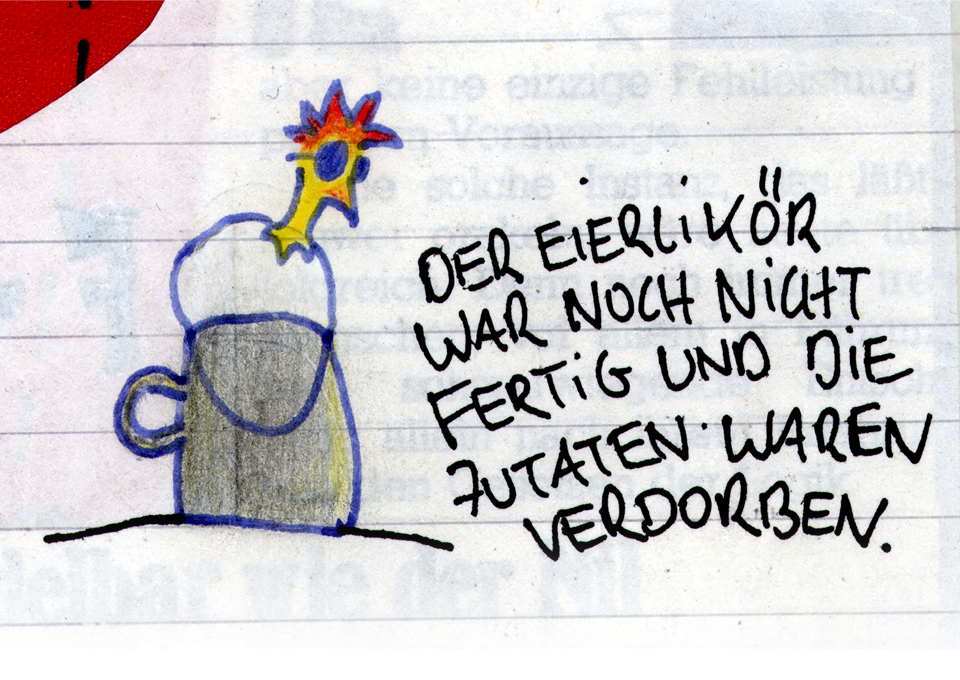 DER EIERLIKÖR
WAR NOCH NICHT
FERTIG UND DIE
ZUTATEN WAREN
VERDORBEN.